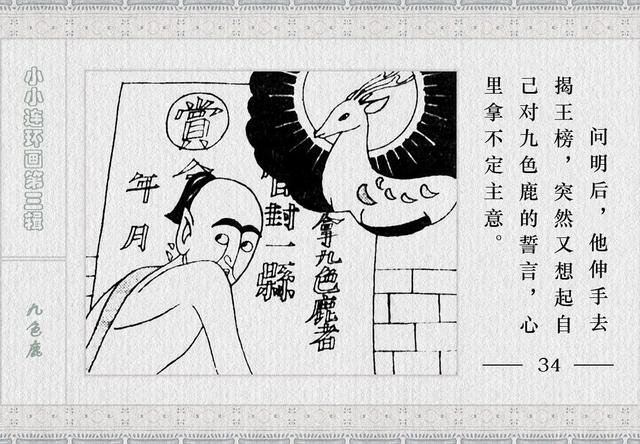 小小连环画第三辑
九色鹿
赏
年
月
封一縣
拿九色鹿者
问明后，他伸手去
揭王榜，突然又想起自
己对九色鹿的誓言，心
里拿不定主意。
34